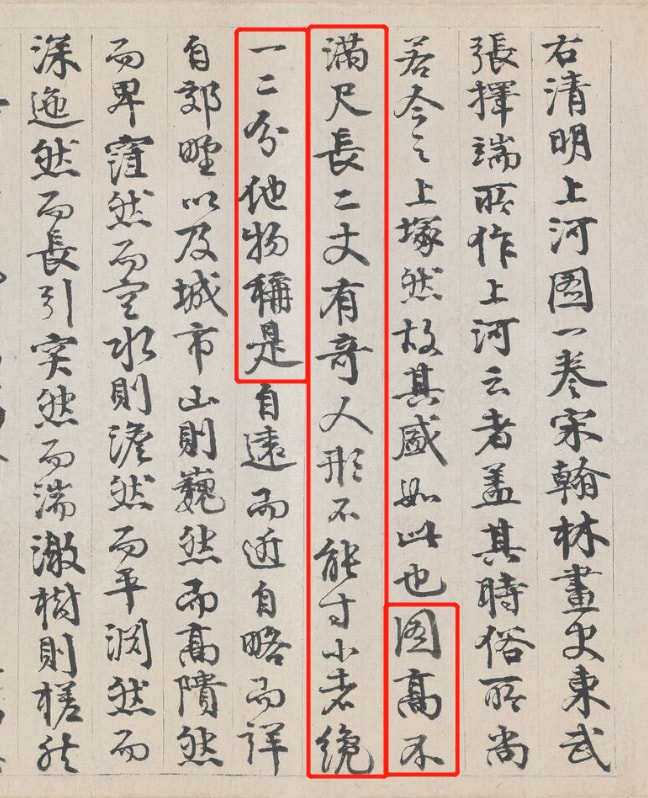 右清明上河图一卷宋翰林畫史東武
張擇端所作上河云者盖其時俗所尚
若今之上塚然故其盛如此也图高不
滿尺長二丈有奇人形不能寸小者纔
一二分他物稱是自遠而近自略而詳
自郊野以及城市山則巍然而高隤然
而卑窪然而空水則澹然而平淵然而
深迤然而長引突然而湍激樹則槎然